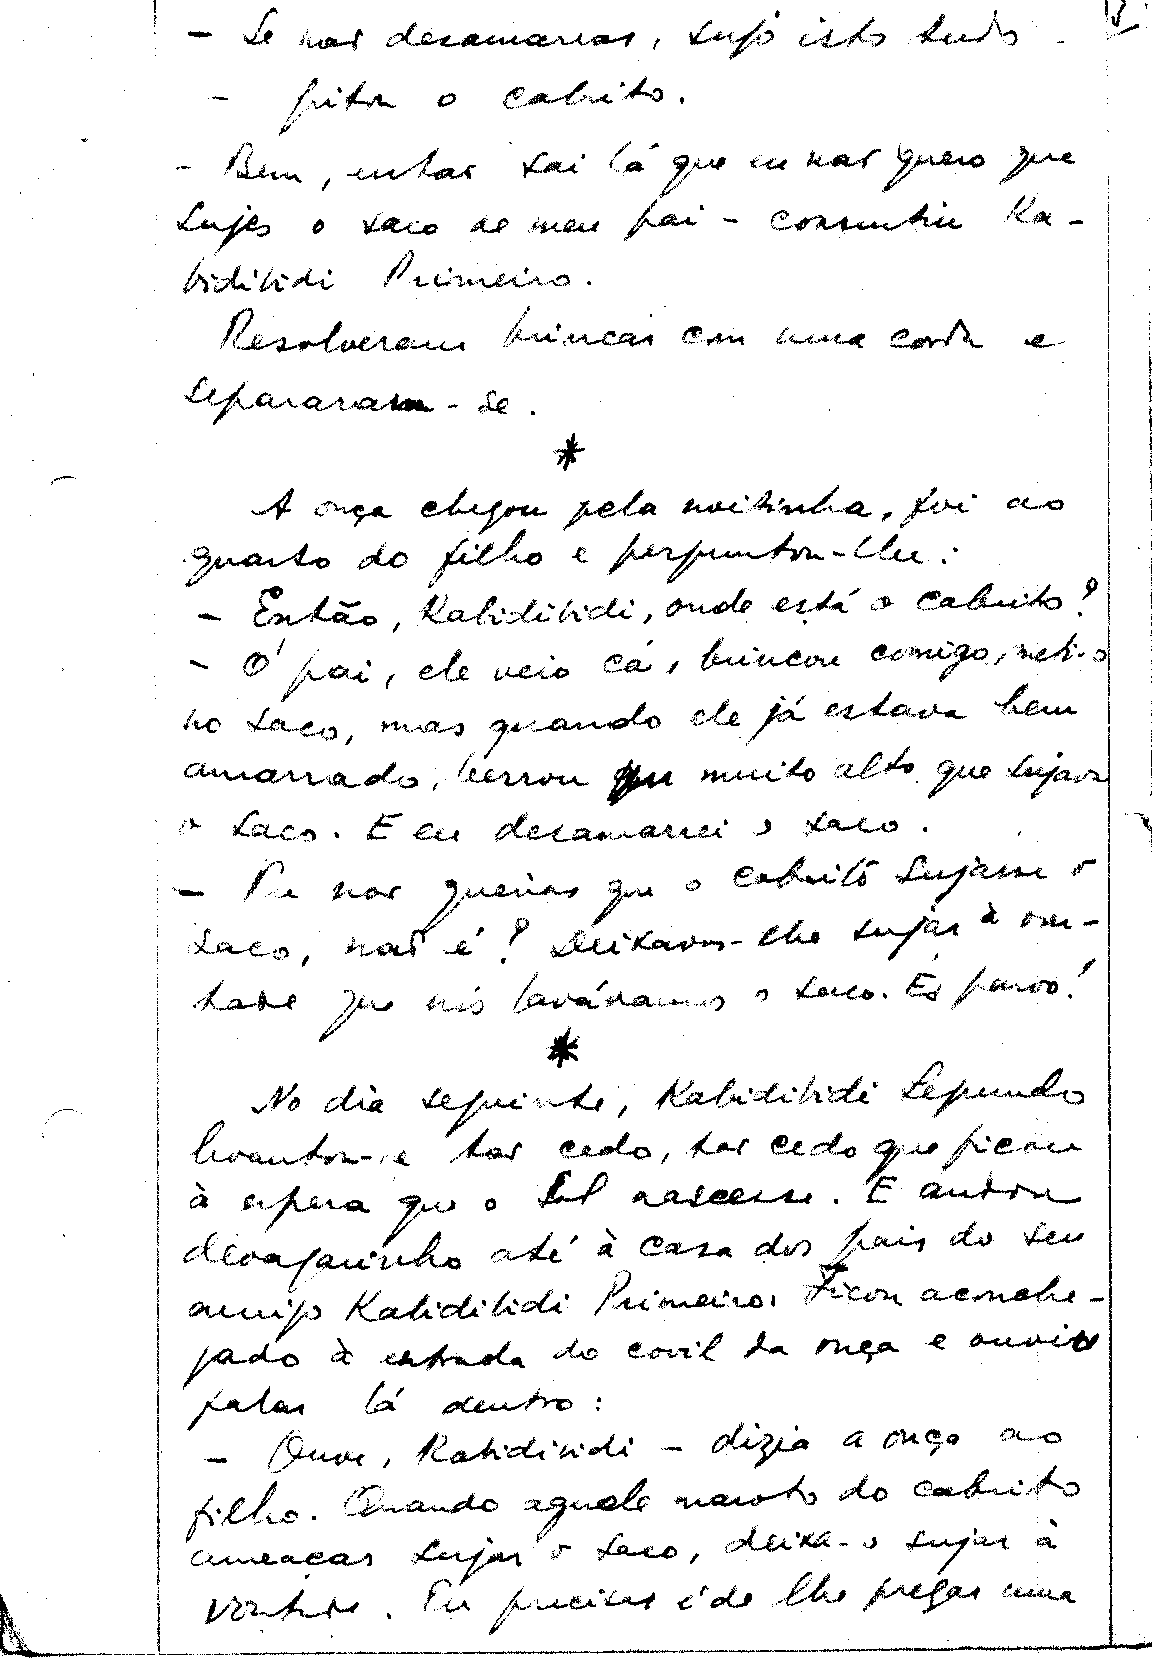 - Se não desamarras, sujo isto tudo
- gritou o cabrito.
- Bem, então sai lá que eu não quero que
sujes o saco de meu pai - consentiu Ka-
biditidi Primeiro.
Resolveram brincar com uma corda e
separaram-se.
*
A onça chegou pela noitinha, foi ao
quarto do filho e perguntou-lhe:
- Então, Kabiditidi, onde está o cabrito?
- Ó pai, ele veio cá, brincou comigo, meti-o
no saco, mas quando ele já estava bem
amarrado, berrou muito alto que sujava
o saco. E eu desamarrei o saco.
- Tu não querias que o cabrito sujasse o
saco, não é? Deixavas-lhe sujar à von-
tade que nós lavávamos o saco. És parvo!
*
No dia seguinte, Kabiditidi Segundo
levantou-se tão cedo, tão cedo que ficou
à espera que o Sol nascesse. E andou
devagarinho até à casa dos pais do seu
amigo Kabiditidi Primeiro. Ficou aconche-
gado à entrada do covil da onça e ouviu
falar lá dentro:
- Ouve, Kabiditidi - dizia a onça ao
filho. Quando aquele maroto do cabrito
ameaçar sujar o saco, deixa-o sujar à
vontade. Eu preciso é de lhe pregar uma